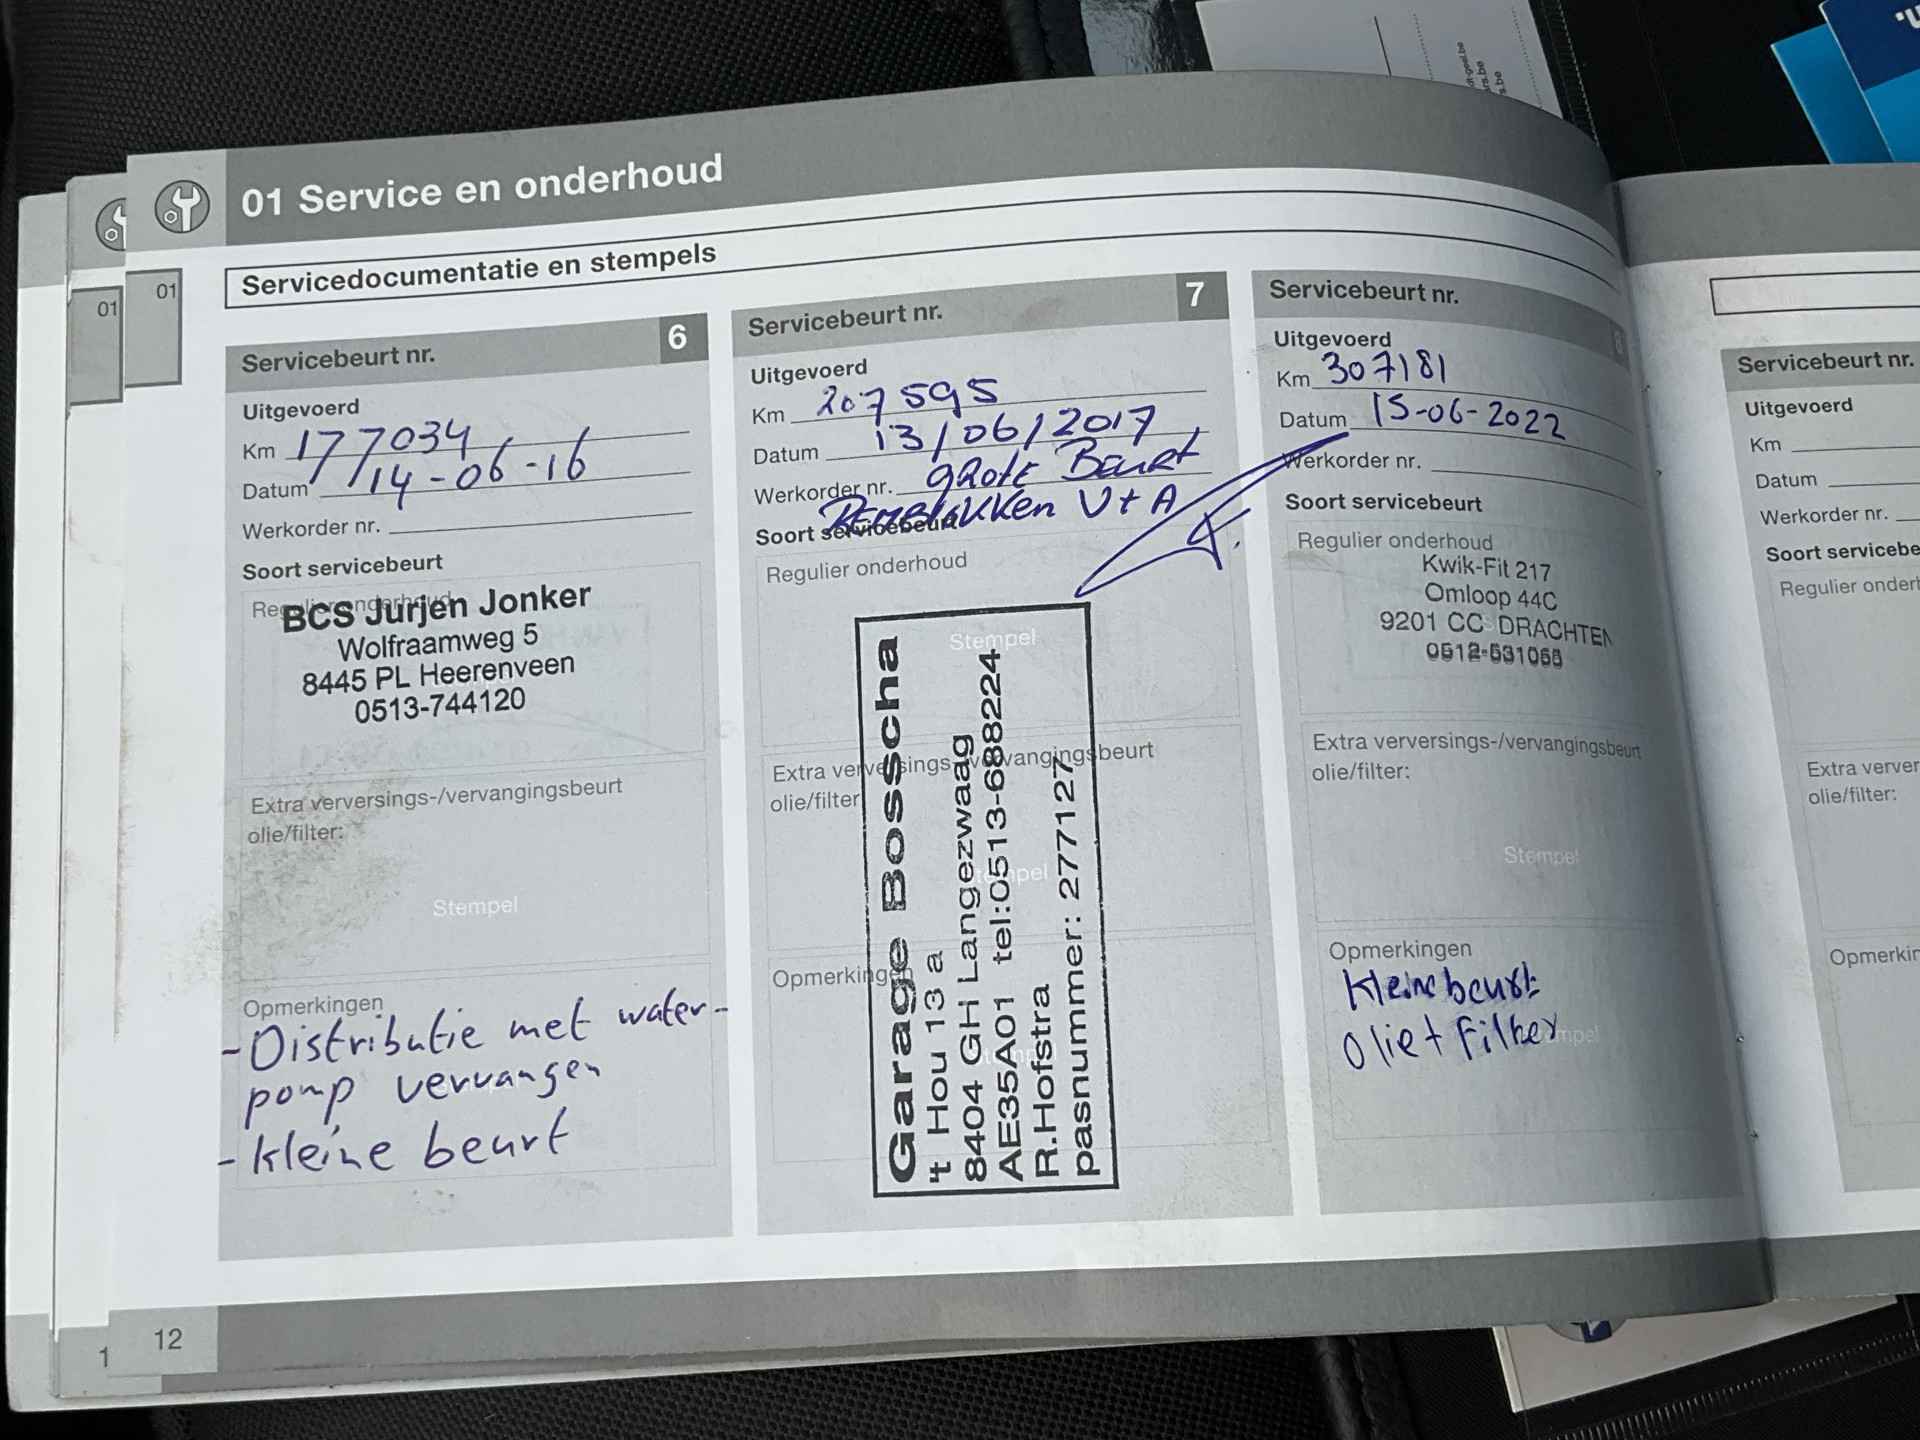 01 Service en onderhoud
01
01
Servicedocumentatie en stempels
Servicebeurt nr. 6
Uitgevoerd
Km 177034
Datum 14-06-16
Werkorder nr.
Soort servicebeurt
Regulier onderhoud
BCS Jurjen Jonker
Wolfraamweg 5
8445 PL Heerenveen
0513-744120
Extra verversings-/vervangingsbeurt
olie/filter:
Stempel
Opmerkingen
- Distributie met water-
pomp vervangen
- kleine beurt
Servicebeurt nr. 7
Uitgevoerd
Km 207595
Datum 13/06/2017
Werkorder nr. grote Beurt
Remblokken V+A
Soort servicebeurt
Regulier onderhoud
Stempel
Extra verversings-/vervangingsbeurt
olie/filter
Stempel
Opmerkingen
Garage Bosscha
't Hou 13 a
8404 GH Langezwaag
AE35A01 tel:0513-688224
R.Hofstra
pasnummer: 277127
Servicebeurt nr. 8
Uitgevoerd
Km 307181
Datum 15-06-2022
Werkorder nr.
Soort servicebeurt
Regulier onderhoud
Kwik-Fit 217
Omloop 44C
9201 CC DRACHTEN
Extra verversings-/vervangingsbeurt
olie/filter:
Stempel
Opmerkingen
Kleine beurt
Olie + Filter
Stempel
Servicebeurt nr.
Uitgevoerd
Km
Datum
Werkorder nr.
Soort servicebe
Regulier ondert
Extra verver
olie/filter:
Opmerkin
12
1